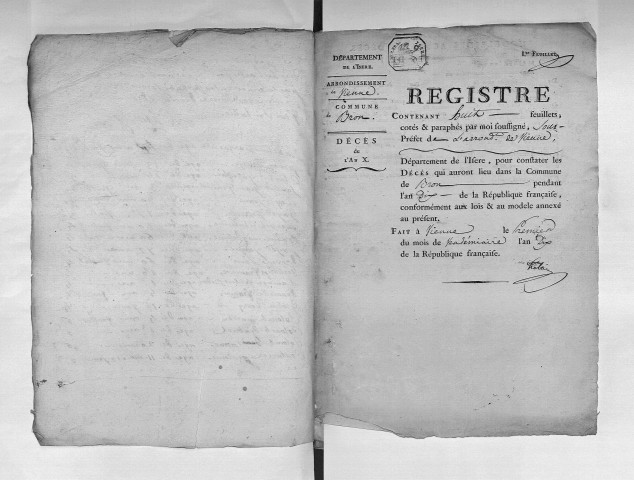 DÉPARTEMENT
DE L'ISERE.
ARRONDISSEMENT
de Vienne.
COMMUNE
de Bron.
DÉCÈS
de
L'AN X.
1.er FEUILLET.
REGISTRE
CONTENANT huit feuillets,
cotés & paraphés par moi soussigné, Sous-
Préfet de L'arrond.t de Vienne,
Département de l'Isere, pour constater les
DÉCÈS qui auront lieu dans la Commune
de Bron pendant
l'an Dix de la République française,
conformément aux lois & au modele annexé
au présent.
FAIT à Vienne le Premier
du mois de vendémiaire l'an Dix
de la République française.